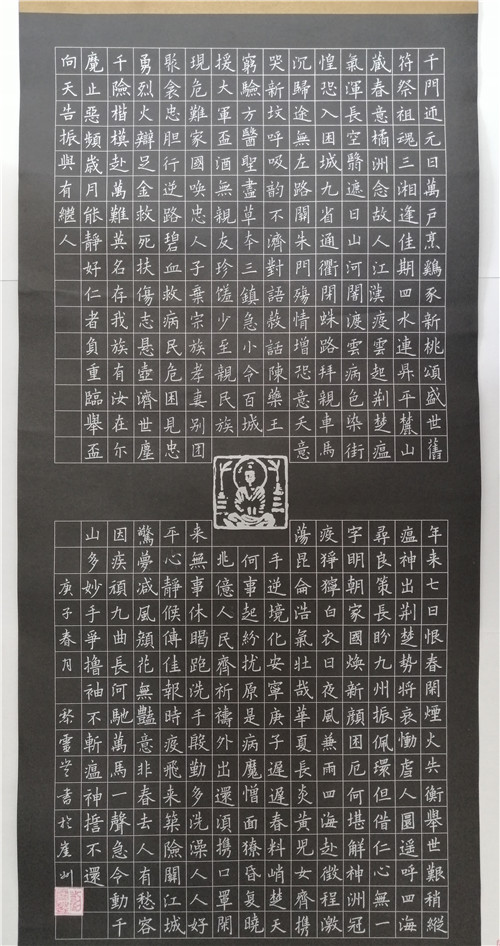 千門迊元日萬戶烹鷄豕新桃頌盛世舊
符祭祖魂三湘逢佳期四水連昇平麓山
藏春意橘洲念故人江漢疫雲起荆楚瘟
氣渾長空翳遮日山河闇渡雲病色染街
惶恐入困城九省通衢閉蛛路拜親車馬
沉歸途無左路關朱門殤情增恐意天意
哭新坟呼吸韵不濟對語殽話陳藥王
窮驗方醫聖盡草本三鎮急小令百城
援大軍盃酒無親友珍饈少至親民族
現危難家國喚忠人子棄宗族孝妻别団
聚衾忠胆行逆路碧血救病民危困見忠
勇烈火辯足金救死扶傷志悬壺濟世塵
千險楷模赴萬難英名存我族有汝在尔
魔止惡頻歲月能靜好仁者負重臨舉盃
向天告振興有繼人
年来七日恨春閑煙火失衡舉世艱稍縱
瘟神出荆楚勢將哀慟虐人圜遥呼四海
尋良策長盼九州振佩環但借仁心無一
字明朝家國煥新顔困厄何堪解神洲冠
疫猙獰白衣日夜風兼雨四海赴徵程激
蕩昆侖浩氣壮哉華夏長炎黄兒女齊携
手逆境化安寧庚子遲遲春料峭楚天
何事起紛扰原是病魔憎面獠昏复曉
兆億人民齊祈禱外出還須携口罩閑
来無事休暍跑洗手殷勤多洗澡人人好
平心靜候傳佳報時疫飛来築險關江城
驚夢减風顔花無豔意非春去人有愁容
因疾頑九曲長河馳萬馬一聲急令動千
山多妙手爭擼袖不斬瘟神誓不還
庚子春月 靈書於崖州